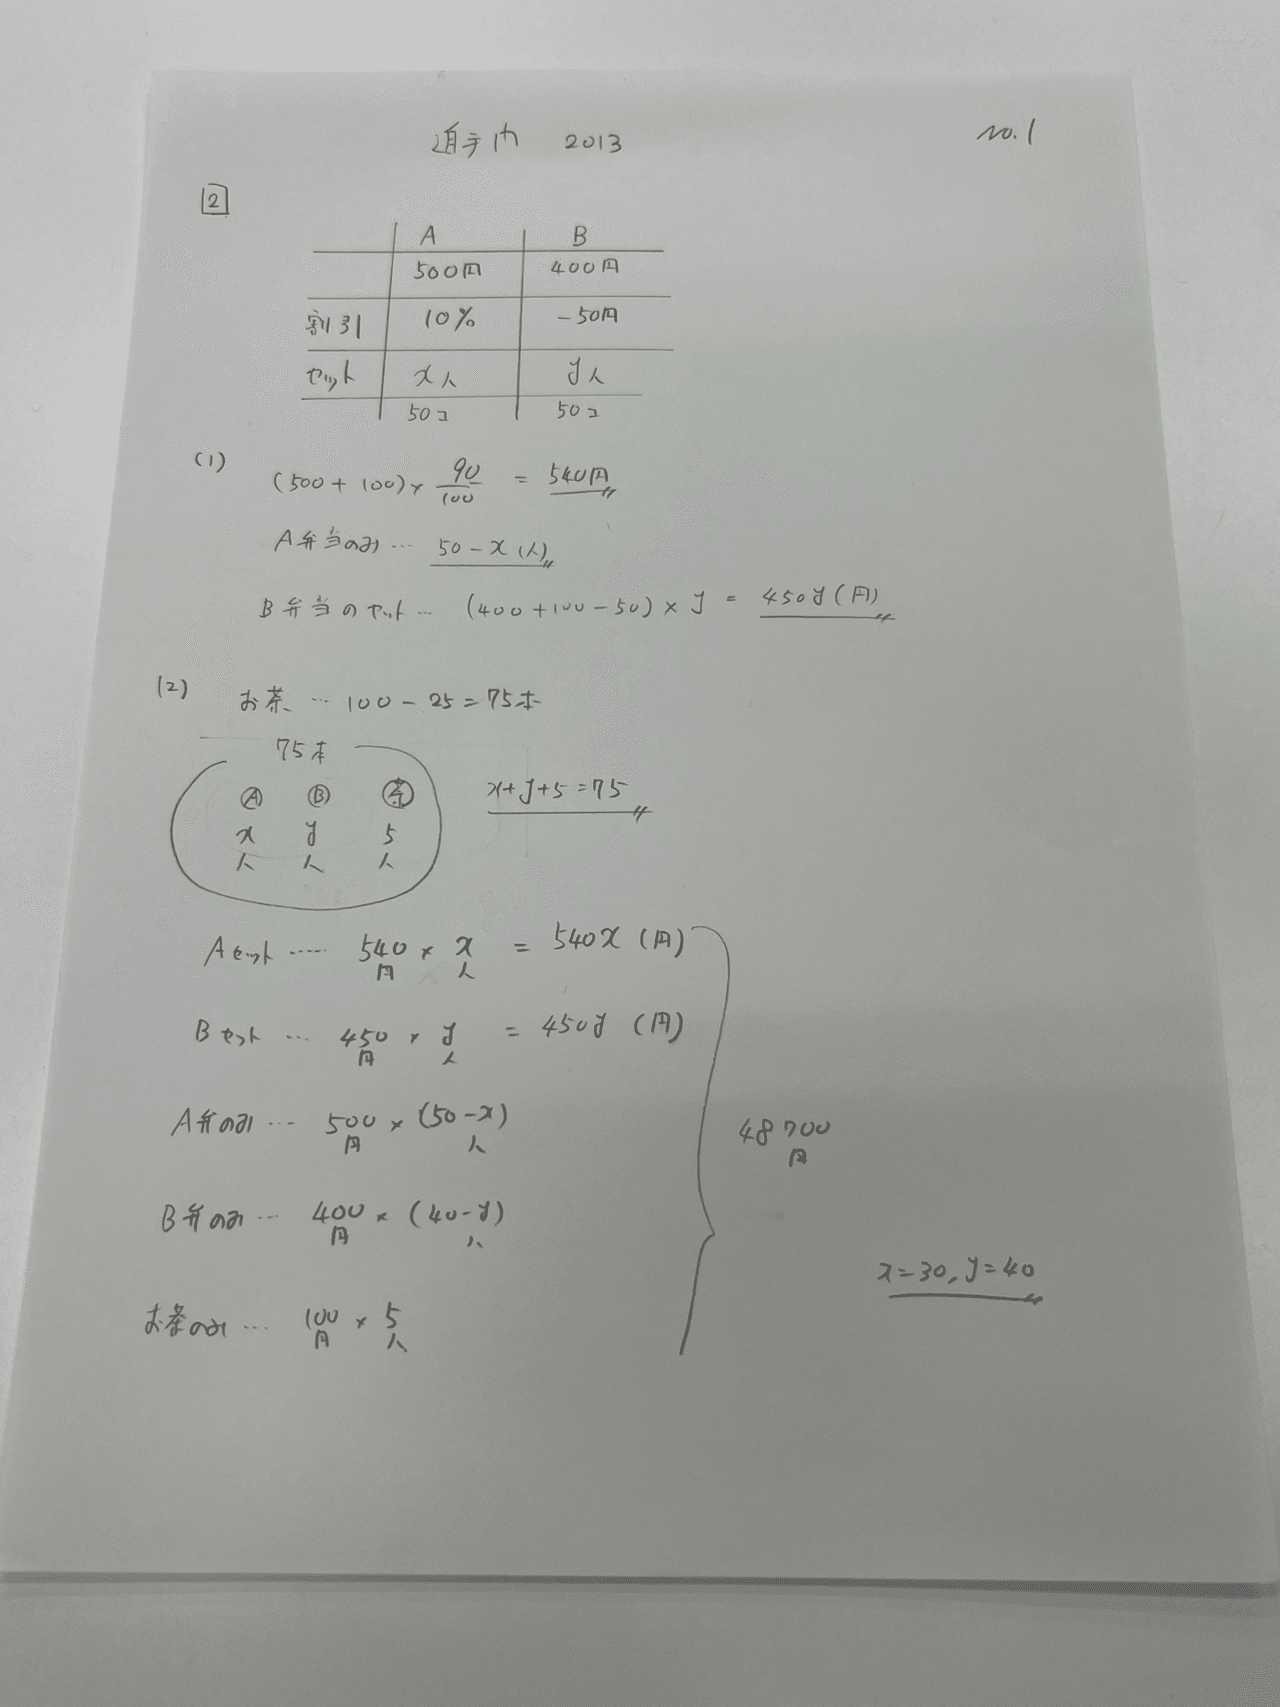 追手門 2013
no.1
2
A B
500円 400円
割引 10% -50円
セット x人 y人
50コ 50コ
(1)
(500+100)× 90/100 = 540円
A弁当のみ… 50-x(人)
B弁当のセット… (400+100-50)×y = 450y(円)
(2) お茶…100-25=75本
75本
Ⓐ Ⓑ 茶
x y 5
人 人 人
x+y+5=75
Aセット…… 540円 × x人 = 540x(円)
Bセット… 450円 × y人 = 450y(円)
A弁のみ… 500円 × (50-x)人
48700円
B弁のみ… 400円 × (40-y)人
x=30, y=40
お茶のみ… 100円 × 5人